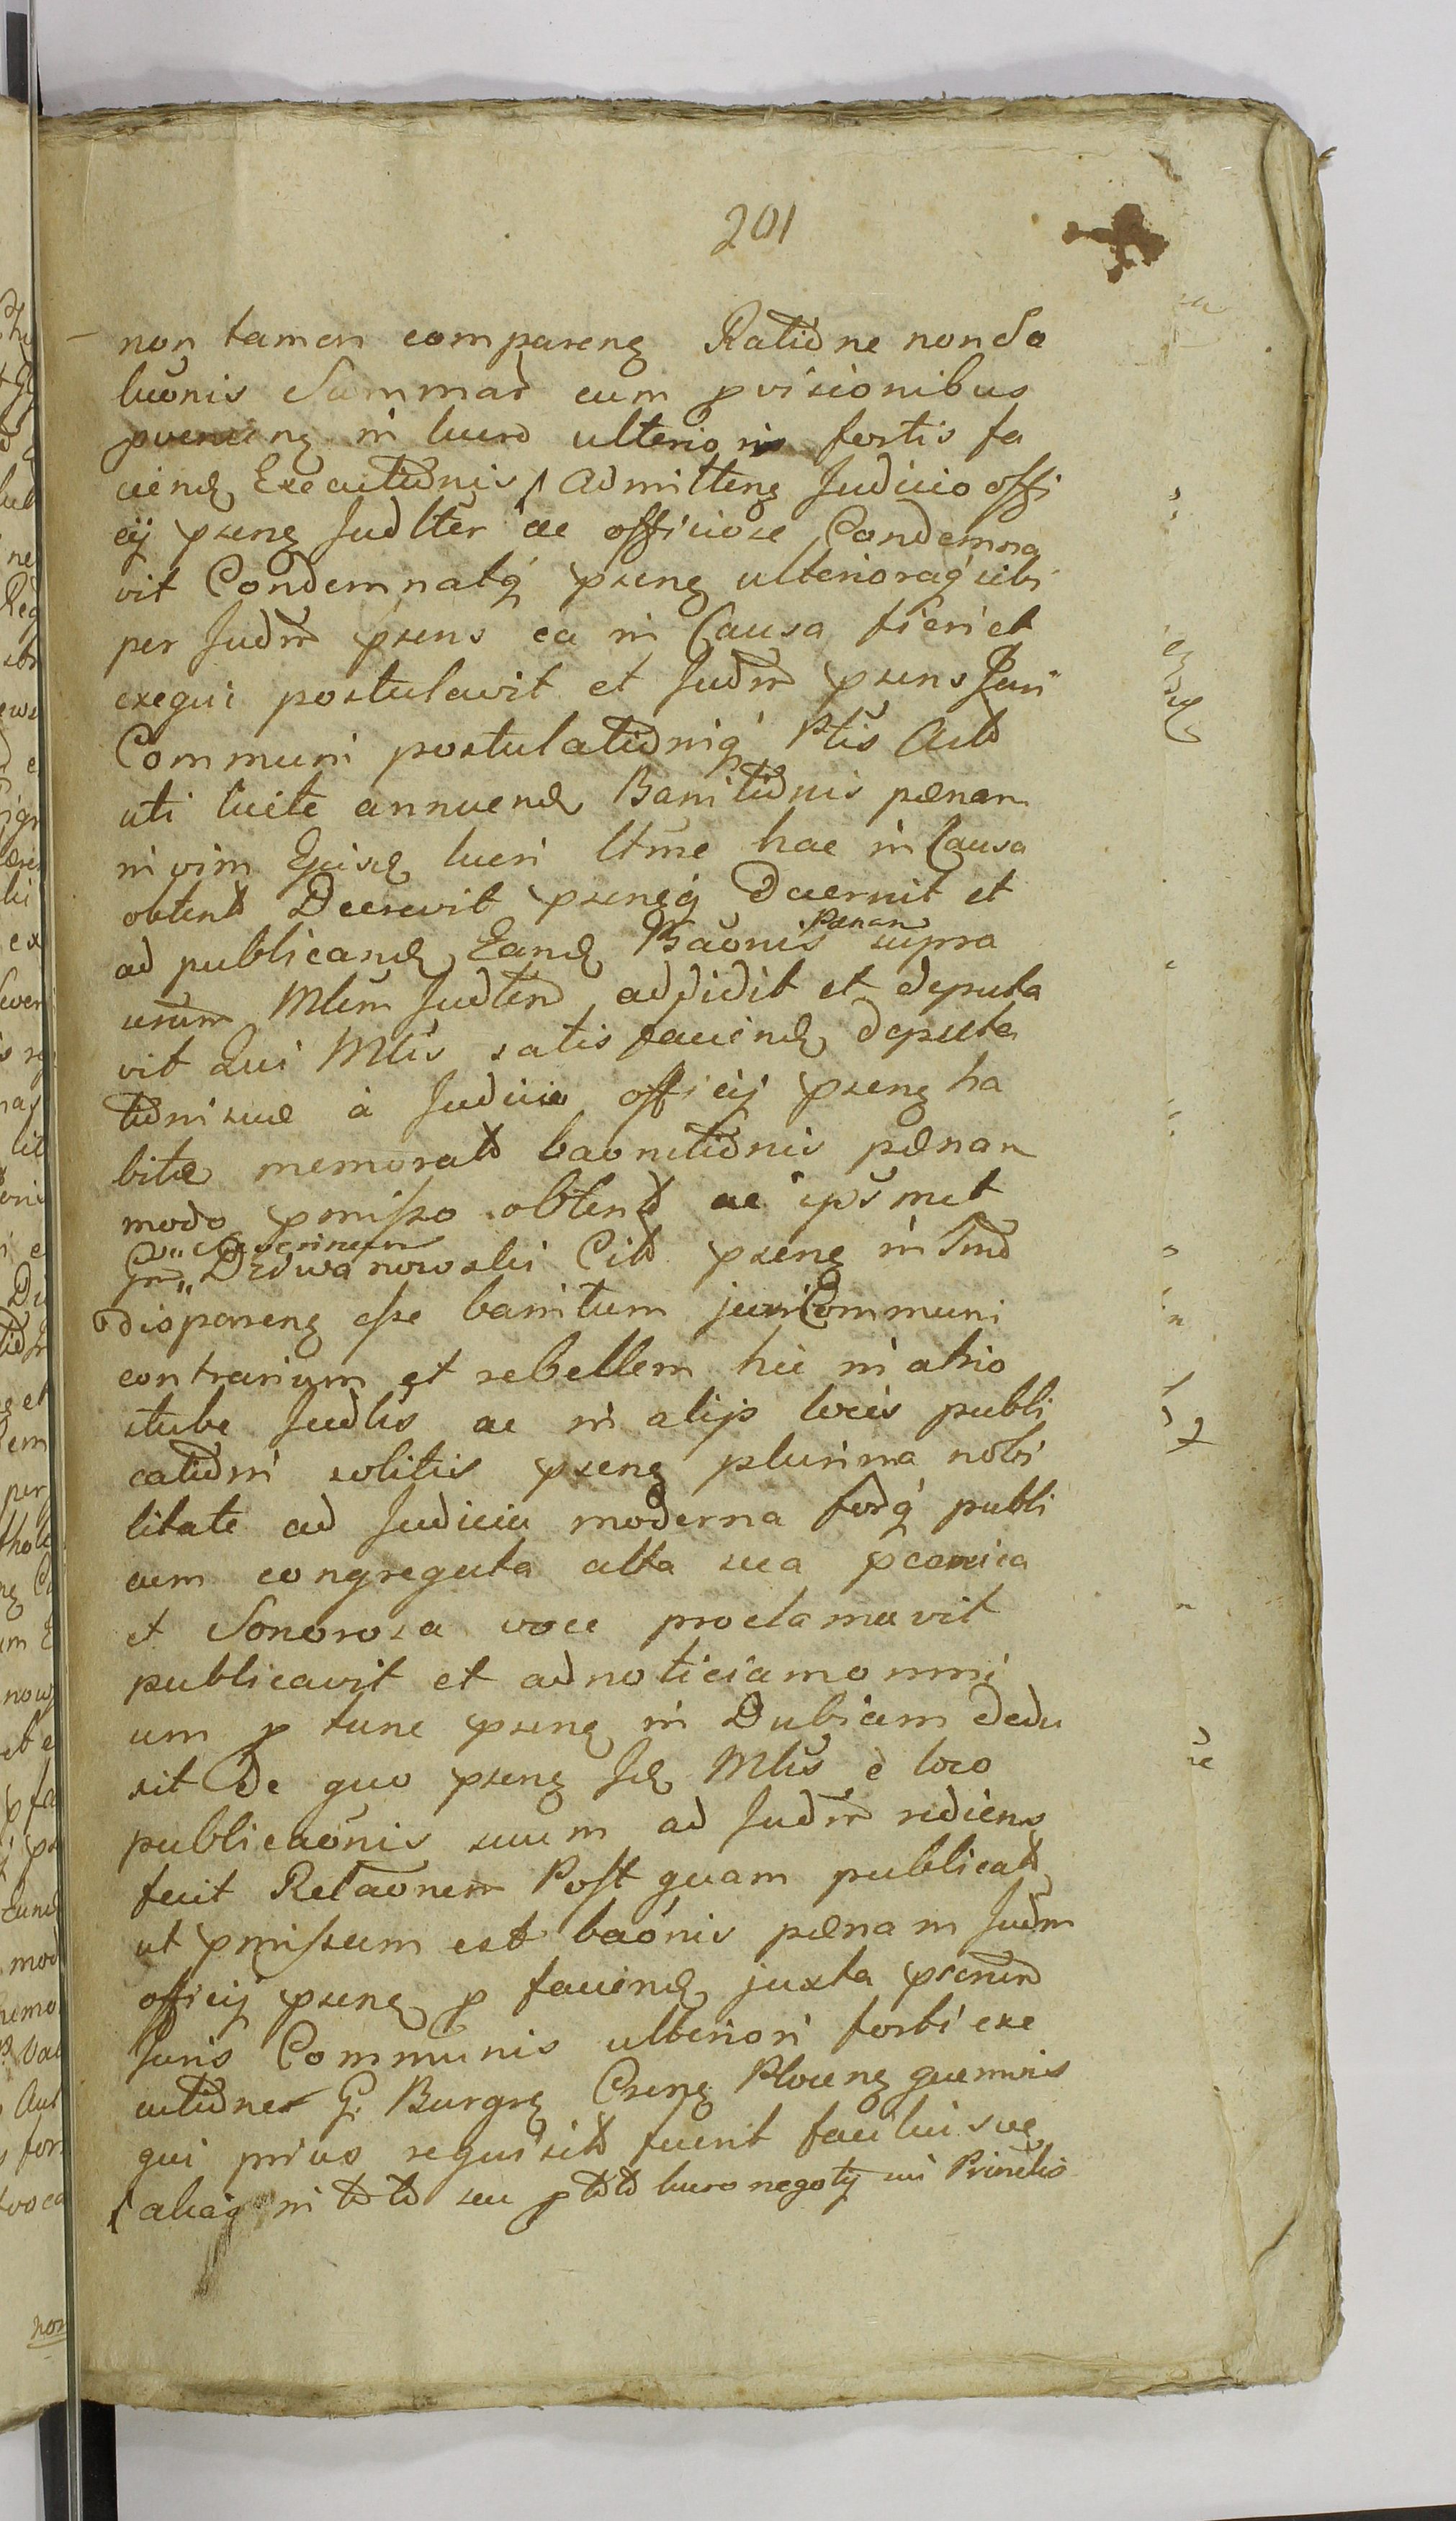 201
non tamen comparens Ratiōne non So
lucōnis Summar̃ cum p̱visionibus
p̱venieñ in lucro ulterioris fortis fa
ciend Executiōnis / Admitteñ Judicio offi
cij p̱señ Judlter ac officiose Condemna
vit Condemnatq́ p̱señ ulterioraq́ sibi
per Judm̃ p̱sens ea in Causa fieri et
exequi postulavit et Judm̃ p̱sens Juri
Communi postulatiōniq́ Ptis Act̃
uti licite annuend Banitiōnis pænam
in vim Ejusd lucri ltme hac in Causa
obtent̃ Decrevit p̱senq́ decernit et
ad publicand Eand Baōnis Pænam supra
Mlem Judlem addidit et deputa
vit Qui Mlis satis faciend deputa
tiōni suæ à Judicio officij p̱señ ha
bitæ memorat̃ banitiōnis pænam
modo p̱misso obtent̃ ac ipsmet
Drdwanowski Cit̃ p̱señ in Tm̃o
dispareñ esse banitum juri Communi
contrarium et rebellem hic in atrio
stubæ Judlis ac in alijs locis publi
catiōni solitis p̱señ plurima nobi
litate ad Judicia moderna forq́ publi
cum congregata alta sua p̱conica
et Sonorosa voce proclamavit
publicavit et ad noticiam omni
um p̱ tunc p̱señ in Dubiam dedu
xit De quo p̱señ Id Mlis è loco
publicaōnis suum ad Judm̃ rediens
fecit Relaōnem Post quam publicat̃
ut p̱missum est baōnis pænam Judm
officij p̱señ p̱ faciend juxta p̱scrum̃
Juris Communis ulteriori forti exe
cutiōne G. Burgr̃ Crseñ Ploceñ quemvis
qui prius requisit̃ fuerit
aliaq́ in tt̃o seu p̱ tt̃o lucro negotij